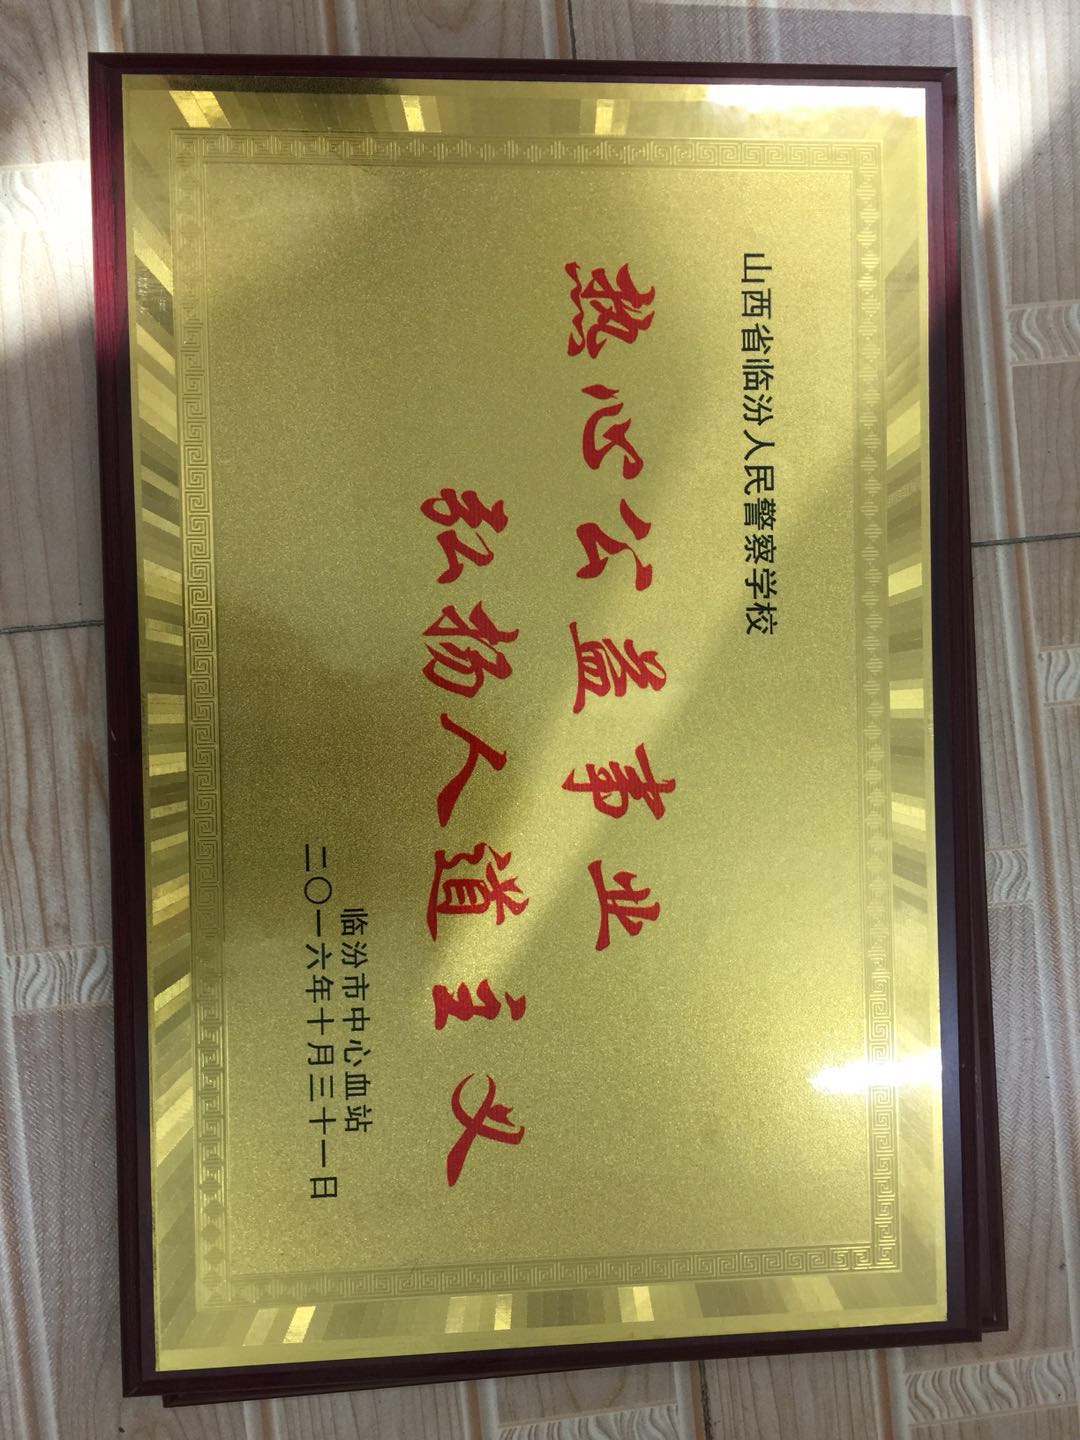 山西省临汾人民警察学校
热心公益事业
弘扬人道主义
临汾市中心血站
二〇一六年十月三十一日